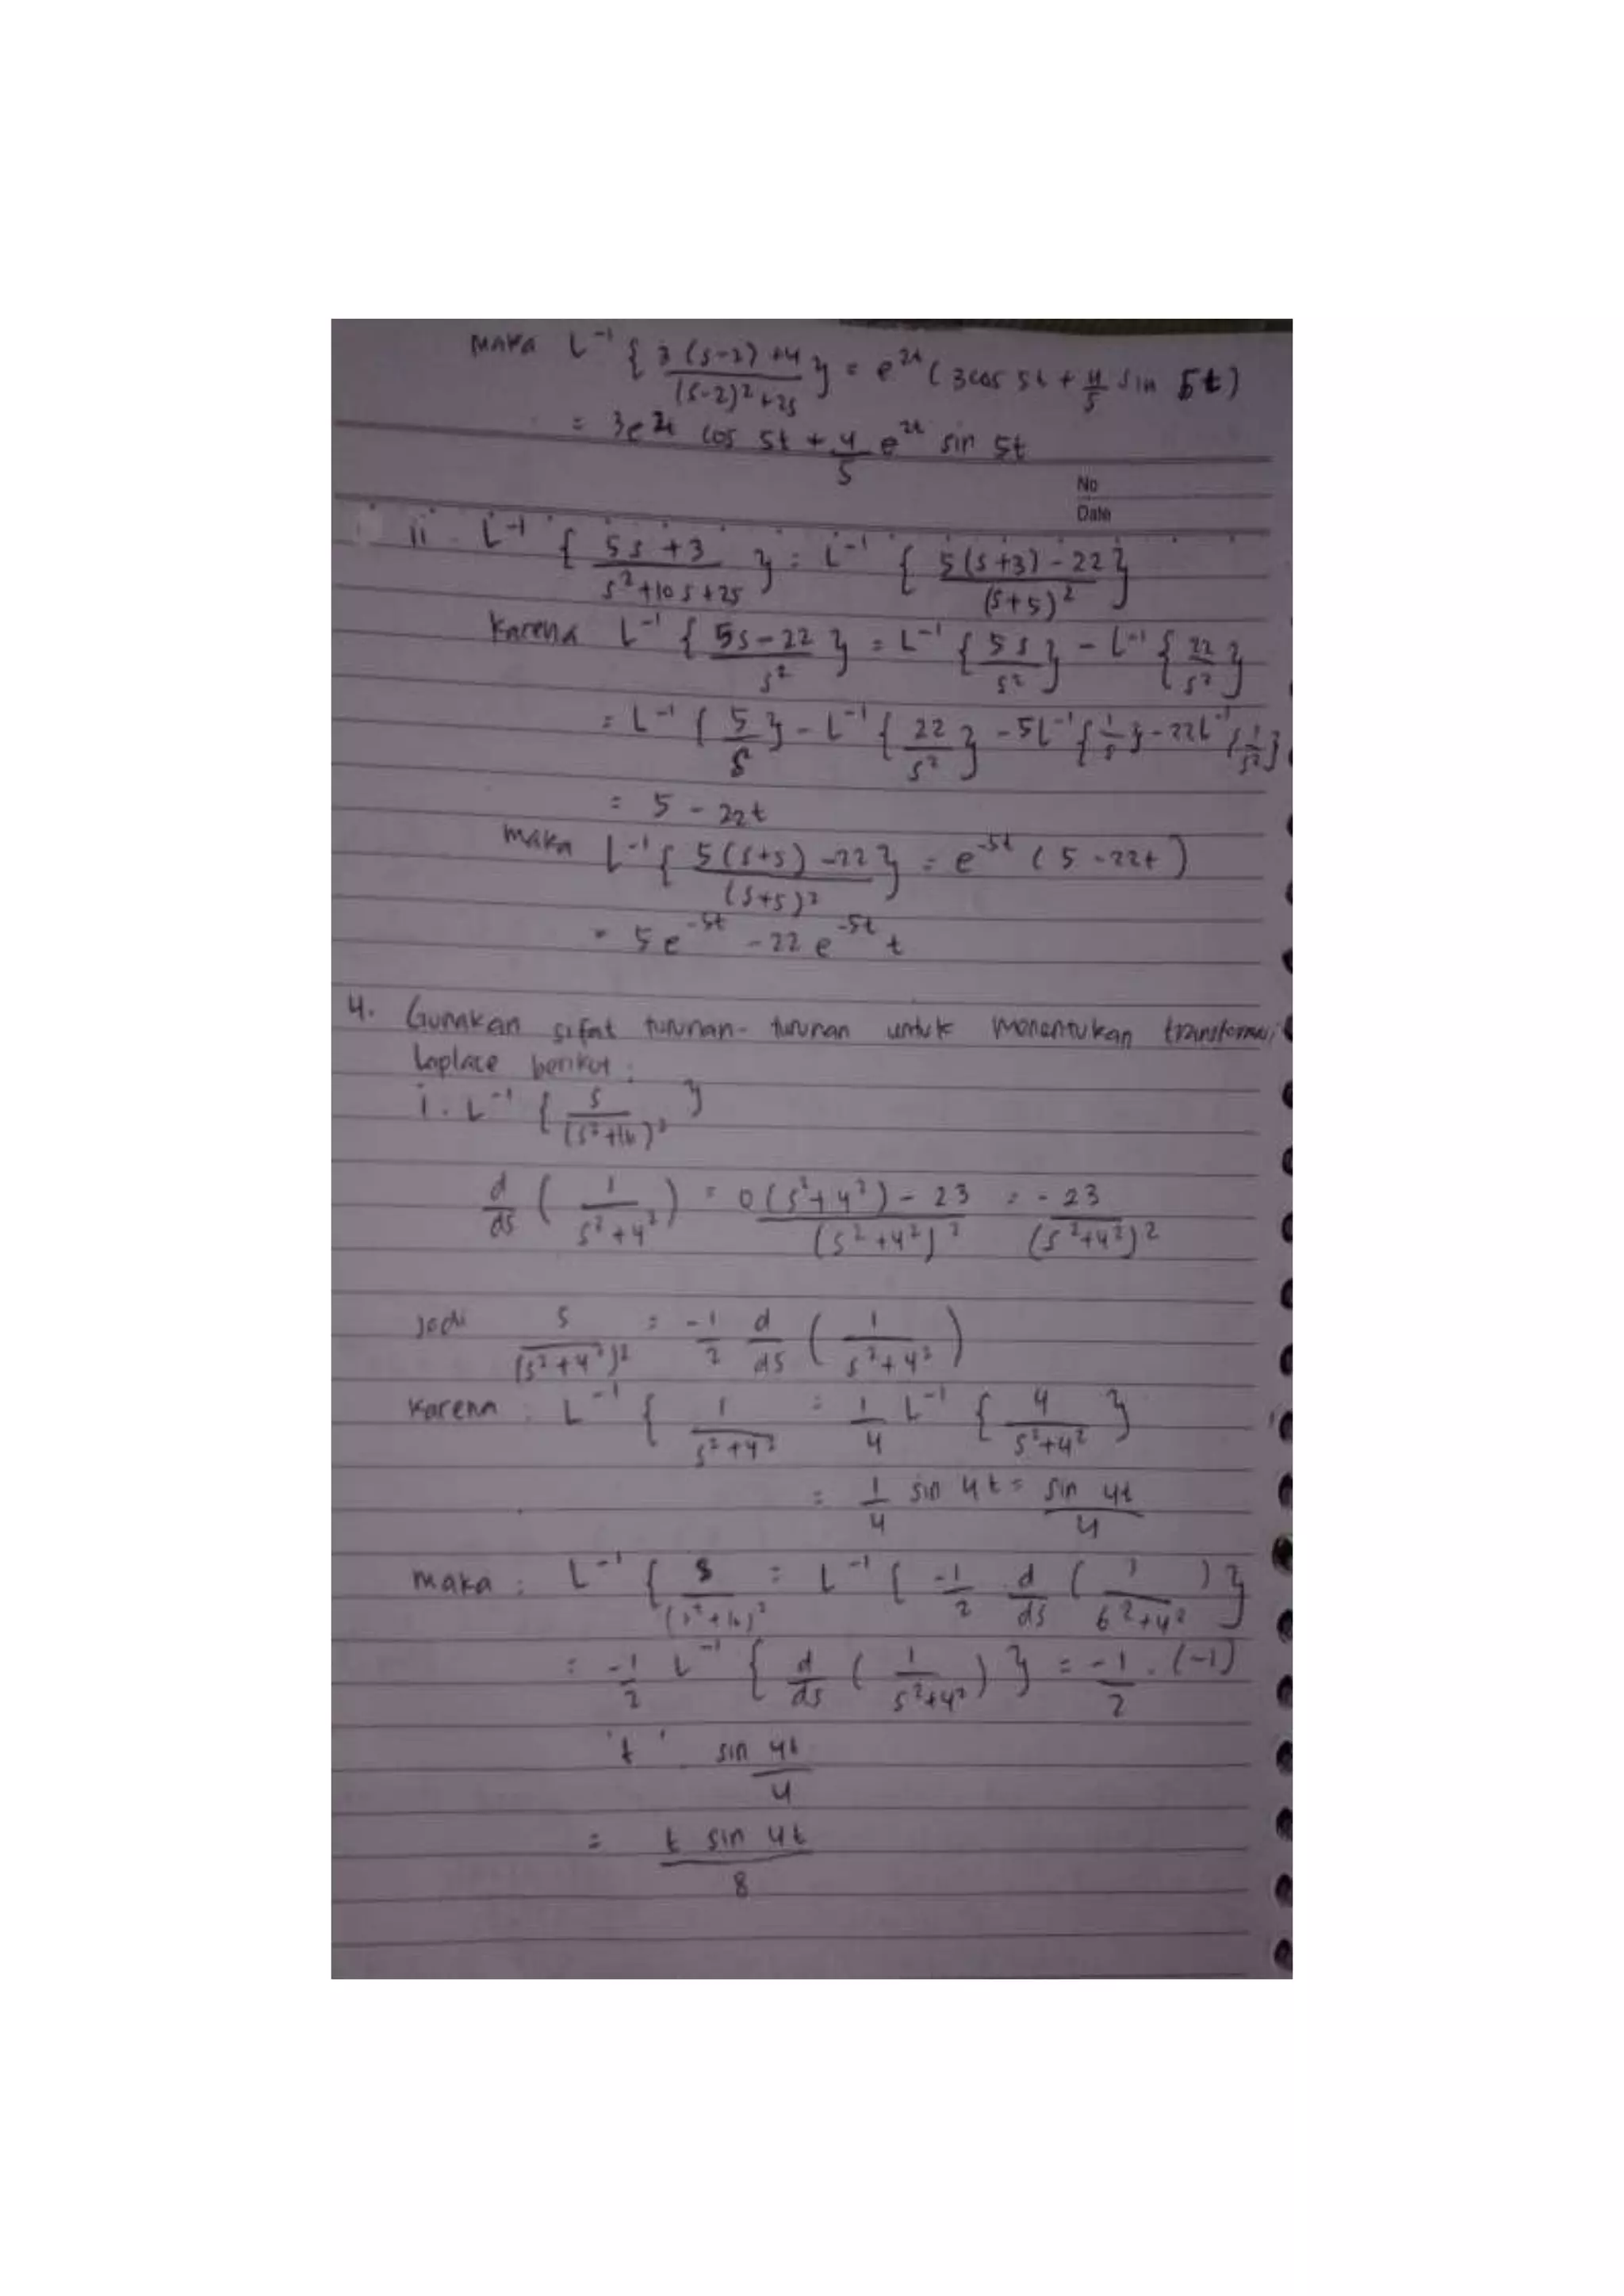 Maka L⁻¹ { 3(s-2)+4 / (s-2)²+25 } = e²ᵗ ( 3cos 5t + 4/5 sin 5t )
= 3e²ᵗ cos 5t + 4/5 e²ᵗ sin 5t
No
Date
ii. L⁻¹ { 5s+3 / s²+10s+25 } = L⁻¹ { 5(s+3)-22 / (s+5)² }
Karena L⁻¹ { 5s-22 / s² } = L⁻¹ { 5s / s² } - L⁻¹ { 22 / s² }
= L⁻¹ { 5/s } - L⁻¹ { 22 / s² } - 5L⁻¹ { 1/s } - 22L⁻¹ { 1/s² }
= 5 - 22t
Maka L⁻¹ { 5(s+5)-22 / (s+5)² } = e⁻⁵ᵗ ( 5-22t )
= 5e⁻⁵ᵗ - 22 e⁻⁵ᵗ t
4. Gunakan sifat turunan-turunan untuk menentukan transformasi
Laplace berikut :
i. L⁻¹ { s / (s²+16)² }
d/ds ( 1 / s²+4² ) = 0(s²+4²) - 23 / (s²+4²)² = - 23 / (s²+4²)²
Jadi s / (s²+4²)² = -1/2 d/ds ( 1 / s²+4² )
Karena : L⁻¹ { 1 / s²+4² = 1/4 L⁻¹ { 4 / s²+4² }
= 1/4 sin 4t = sin 4t / 4
Maka : L⁻¹ { s / (s²+16)² = L⁻¹ { -1/2 d/ds ( 1 / 6²+4² ) }
= -1/2 L⁻¹ { d/ds ( 1 / s²+4² ) } = -1/2 . (-1)
t sin 4t / 4
= t sin 4t / 8